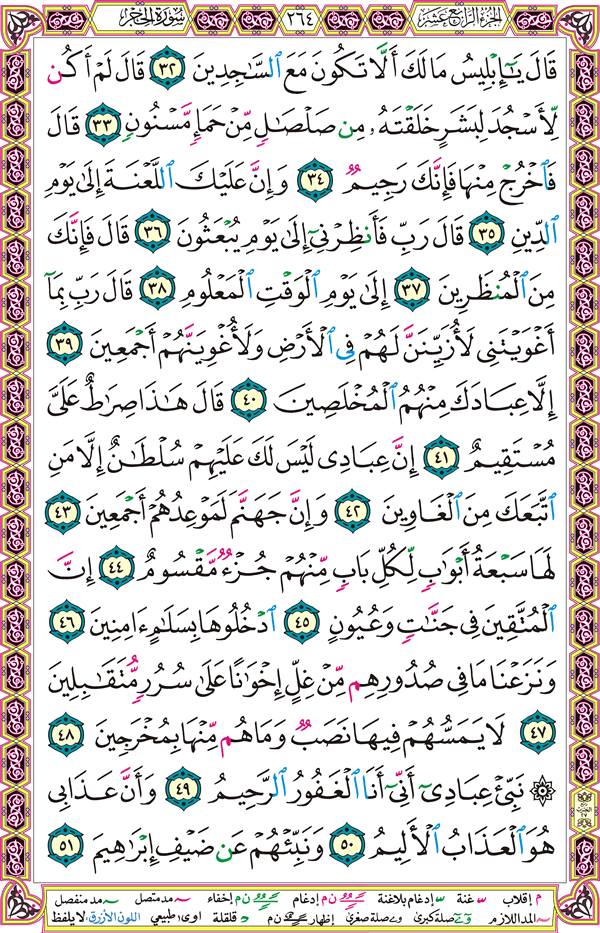 الجزء الرابع عشر ٢٦٤ سورة الحجر
قَالَ يَٰٓإِبْلِيسُ مَا لَكَ أَلَّا تَكُونَ مَعَ ٱلسَّٰجِدِينَ ٣٢ قَالَ لَمْ أَكُن
لِّأَسْجُدَ لِبَشَرٍ خَلَقْتَهُۥ مِن صَلْصَٰلٍ مِّنْ حَمَإٍ مَّسْنُونٍ ٣٣ قَالَ
فَٱخْرُجْ مِنْهَا فَإِنَّكَ رَجِيمٌ ٣٤ وَإِنَّ عَلَيْكَ ٱللَّعْنَةَ إِلَىٰ يَوْمِ
ٱلدِّينِ ٣٥ قَالَ رَبِّ فَأَنظِرْنِىٓ إِلَىٰ يَوْمِ يُبْعَثُونَ ٣٦ قَالَ فَإِنَّكَ
مِنَ ٱلْمُنظَرِينَ ٣٧ إِلَىٰ يَوْمِ ٱلْوَقْتِ ٱلْمَعْلُومِ ٣٨ قَالَ رَبِّ بِمَآ
أَغْوَيْتَنِى لَأُزَيِّنَنَّ لَهُمْ فِى ٱلْأَرْضِ وَلَأُغْوِيَنَّهُمْ أَجْمَعِينَ ٣٩
إِلَّا عِبَادَكَ مِنْهُمُ ٱلْمُخْلَصِينَ ٤٠ قَالَ هَٰذَا صِرَٰطٌ عَلَىَّ
مُسْتَقِيمٌ ٤١ إِنَّ عِبَادِى لَيْسَ لَكَ عَلَيْهِمْ سُلْطَٰنٌ إِلَّا مَنِ
ٱتَّبَعَكَ مِنَ ٱلْغَاوِينَ ٤٢ وَإِنَّ جَهَنَّمَ لَمَوْعِدُهُمْ أَجْمَعِينَ ٤٣
لَهَا سَبْعَةُ أَبْوَٰبٍ لِّكُلِّ بَابٍ مِّنْهُمْ جُزْءٌ مَّقْسُومٌ ٤٤ إِنَّ
ٱلْمُتَّقِينَ فِى جَنَّٰتٍ وَعُيُونٍ ٤٥ ٱدْخُلُوهَا بِسَلَٰمٍ ءَامِنِينَ ٤٦
وَنَزَعْنَا مَا فِى صُدُورِهِم مِّنْ غِلٍّ إِخْوَٰنًا عَلَىٰ سُرُرٍ مُّتَقَٰبِلِينَ
٤٧ لَا يَمَسُّهُمْ فِيهَا نَصَبٌ وَمَا هُم مِّنْهَا بِمُخْرَجِينَ ٤٨
۞ نَبِّئْ عِبَادِىٓ أَنِّىٓ أَنَا ٱلْغَفُورُ ٱلرَّحِيمُ ٤٩ وَأَنَّ عَذَابِى
هُوَ ٱلْعَذَابُ ٱلْأَلِيمُ ٥٠ وَنَبِّئْهُمْ عَن ضَيْفِ إِبْرَٰهِيمَ ٥١
م إقلاب غنة إدغام بلاغنة ن م إدغام ن م إخفاء مد متصل مد منفصل
المد اللازم صلة كبرى صلة صغرى إظهار ن م قلقلة اوى طبيعي اللون الأزرق: لا يلفظ